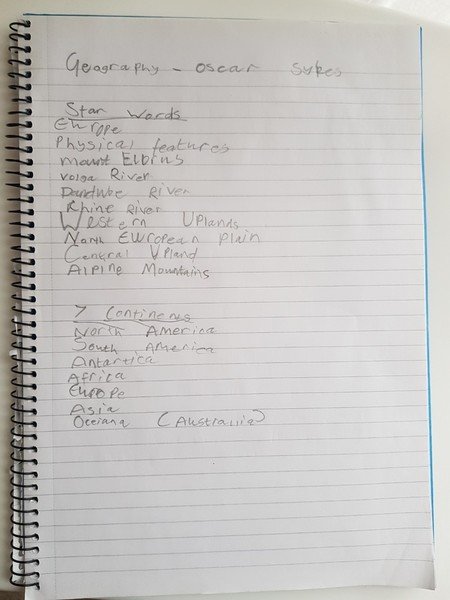 Geography - Oscar Sykes
Star Words
Europe
Physical features
Mount Elbrus
Volga River
River
Rhine River
Western Uplands
North Ewropean Plain
Central Upland
Alpine Mountains
7 Continents
North America
South America
Antartica
Africa
Europe
Asia
Oceiana (Australia)